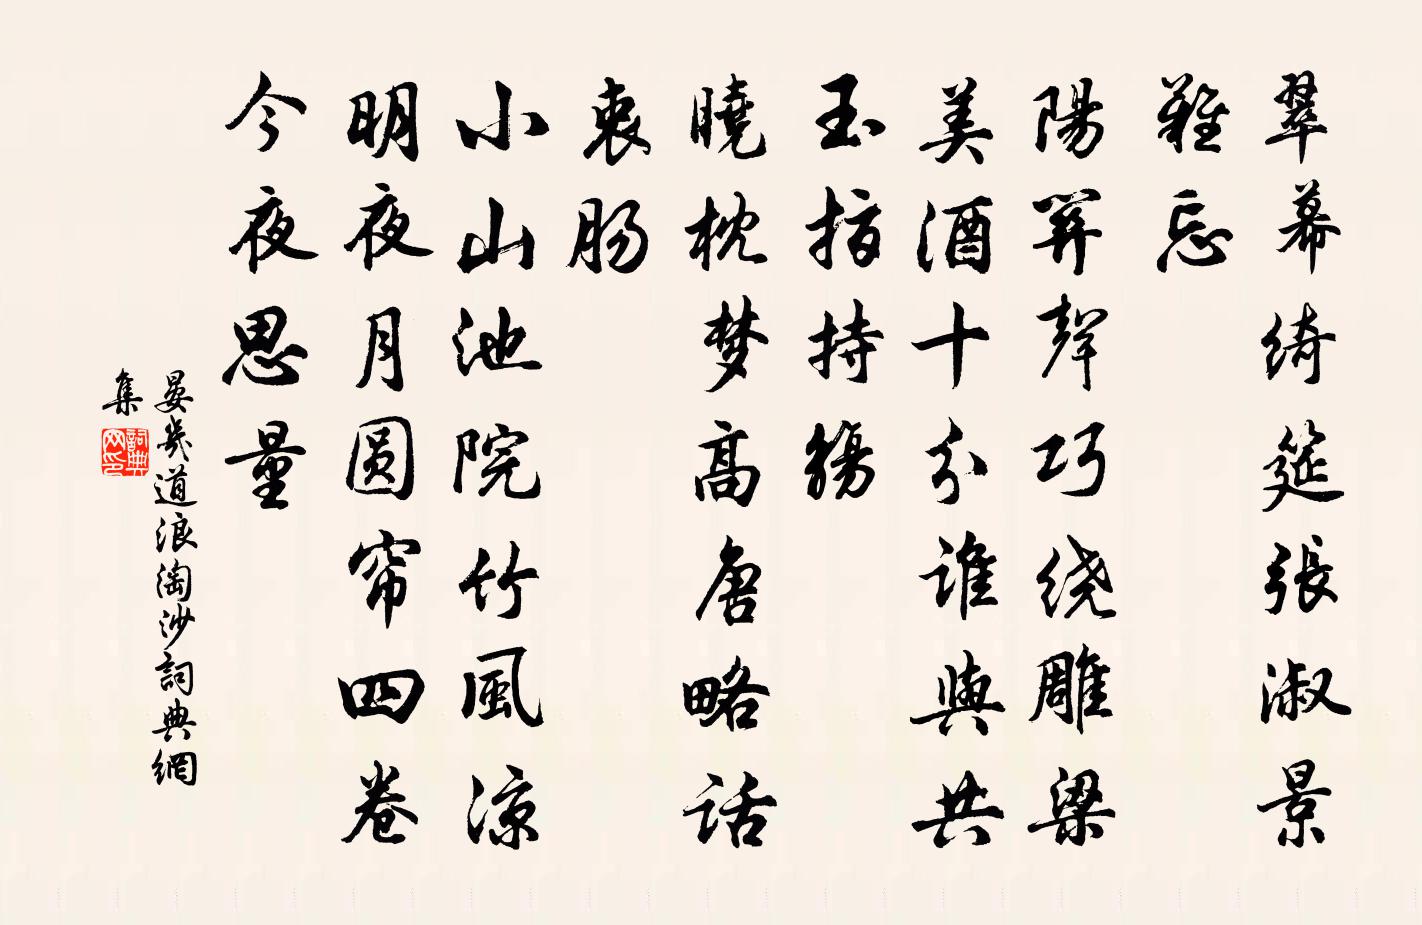 翠幕绮筵張淑景
難忘
陽關聲巧绕雕梁
美酒十分谁與共
玉指持觴
曉枕梦高唐略话
衷肠
小山池院竹風凉
明夜月圆帘四卷
今夜思量
晏幾道浪淘沙詞典網
集
詞典网印